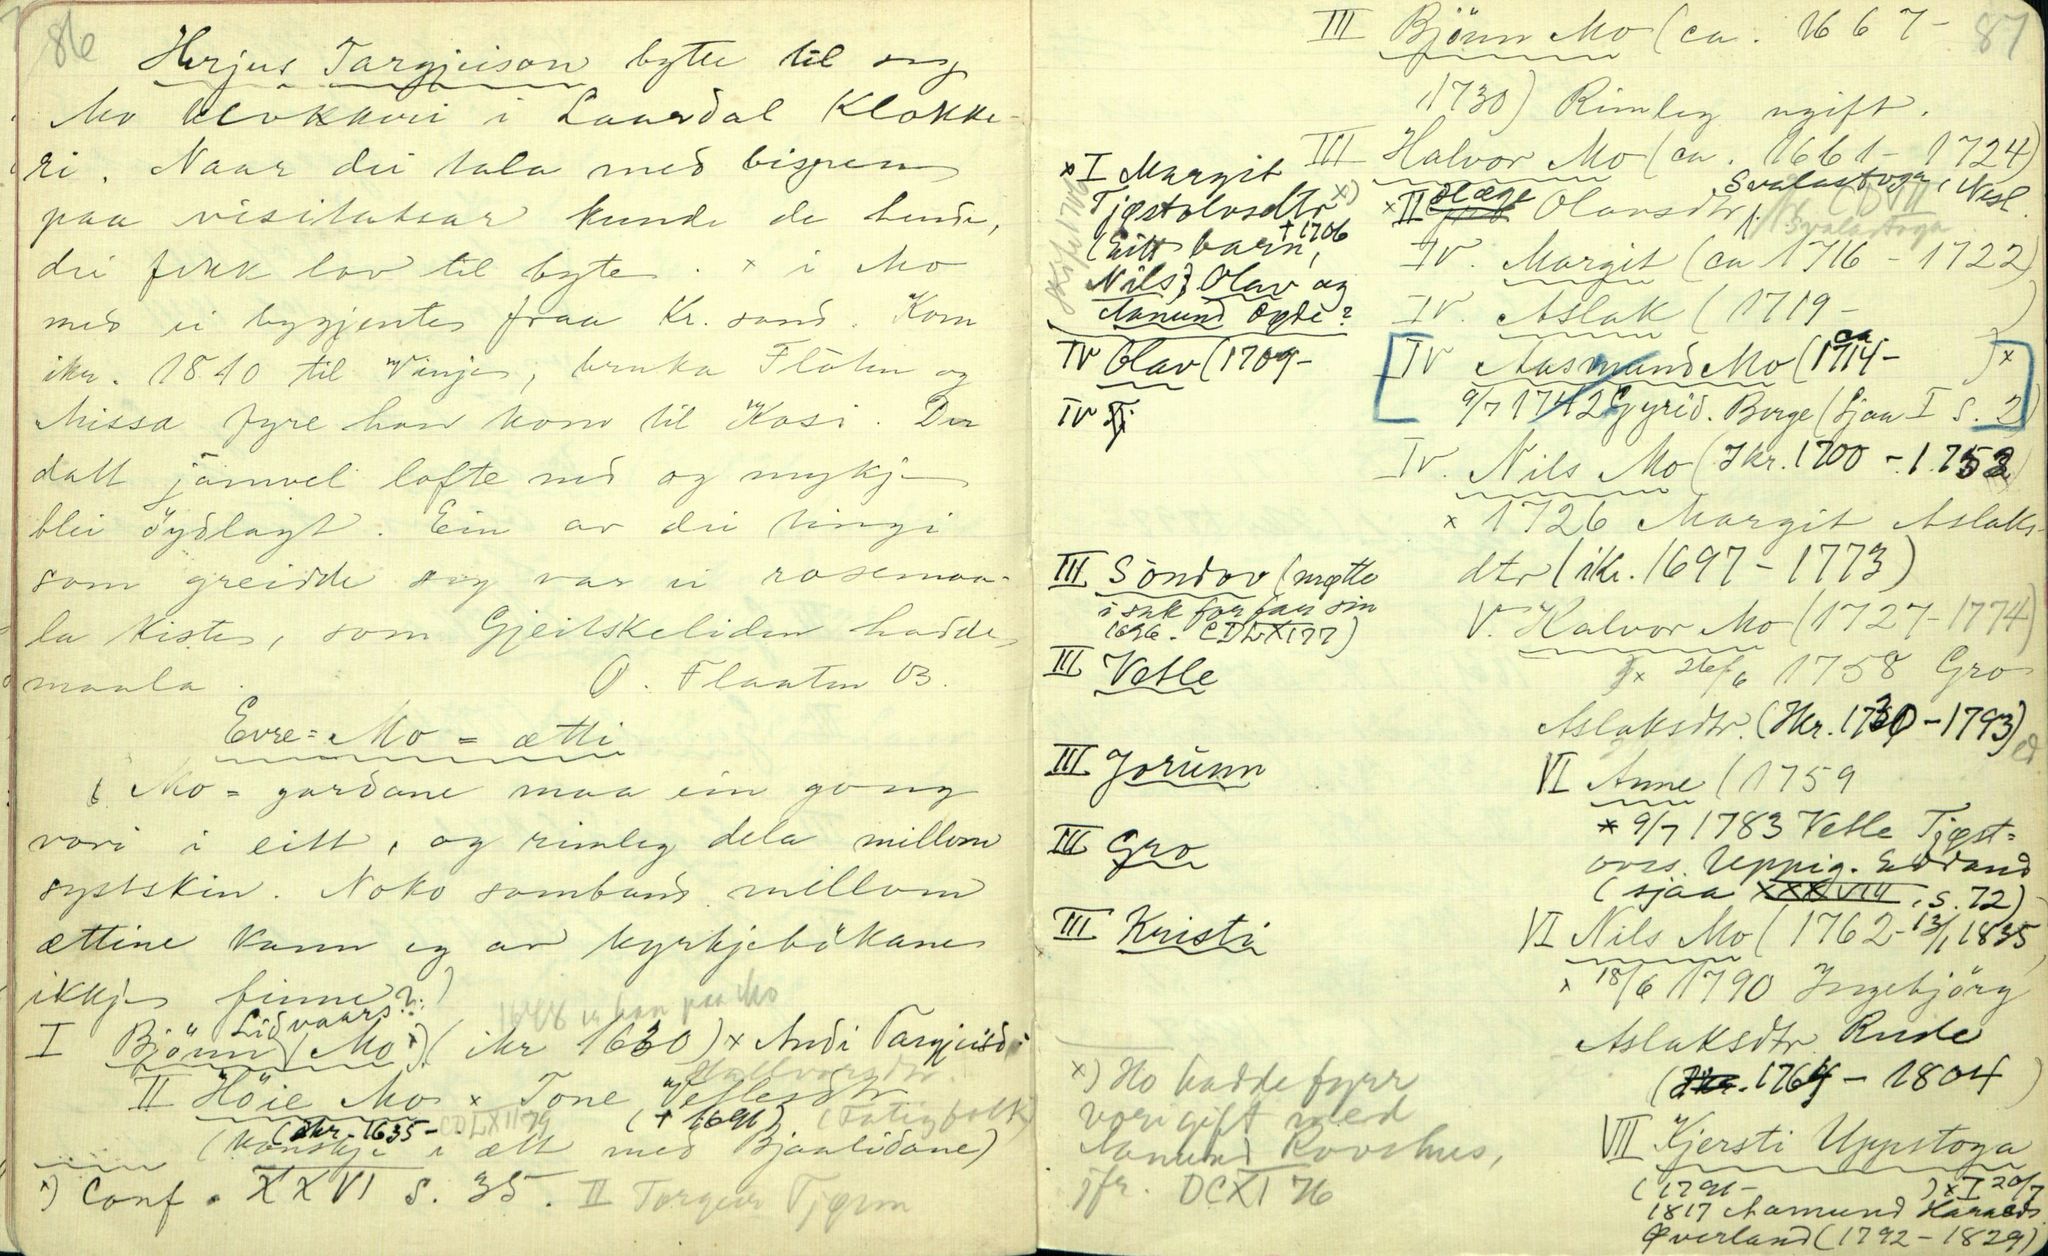 86
Herjus Targjeison bytte til seg
Mo klokkeri i Laardal Klokke-
ri. Naar dei tala med bispen
paa visitatsar kunde de hende,
dei fekk lov til byte. x i Mo
med ei bygjente fraa Kr. sand. Kom
ikr. 1840 til Vinje, bruka Flöten og
Missa fyre han kom til Kosi. Der
datt jamvel lofte ned og mykje
blei öydlagt. Ein av dei tingi
som greidde seg var ei rosemaa-
la kiste, som Gjeitskeliden hadde
maala. O. Flaaten 03.
Evre-Mo-ætti
i Mo-gardane maa ein gong
vori i eitt, og rimleg dela millom
systskin. Noko samband millom
ættine kann eg av kyrkjebökane
ikkje finne?:)
1648 er han paa Mo
I Bjönn Lidvaars? Mo x) (ikr 1630) x Andi Targjeisd.
Hallvorsdtr.
II Höie Mo x Tone Vetlesdtr
(ikr. 1635- CDLXII 79 († 1691) (Fatigfolk)
(kanskje i ætt med Bjaalidane)
x) Conf. XXVI s. 35. II Torgeir Tjönn
87
III Bjönn Mo (ca. 1667-
1730) Rimleg ugift.
III Halvor Mo (ca. 1661-1724)
x I Margit
Tjøstolvsdtr x)
† 1706
(Eitt barn,
Nils) Olav og
Aamund Øyde?
Skifte 1706
x II Slæge Olavsdtr f. Svalastoga, Nesl.
CDVII
Svalastoga
IV. Margit (ca 1716-1722)
IV. Aslak (1719- )
IV Olav (1709-
[IV Aasmund Mo (ca 1714- )x
9/7 1742 Gyrid. Berge (sjaa I s. 2)]
IV
IV. Nils Mo (Ikr. 1700-1753)
x 1726 Margit Aslaks-
dtr (ikr. 1697-1773)
III Söndov (møtte
i sak fyr far sin
1696. CDLXI 77)
V. Halvor Mo (1727-1774)
x 26/6 1758 Gro
Aslaksdtr. (Ikr. 1730-1793)
III Vetle
III Jorunn
VI Anne (1759
x 9/7 1783 Vetle Tjøst-
ovs. Uppig. Edland
(sjaa XXXVIII, s. 72)
III Gro
III Kristi
VI Nils Mo (1762-13/1 1835)
x 18/6 1790 Ingebjörg
Aslaksdtr Rude
(Ikr. 1764-1804)
x) Ho hadde fyrr
vori gift med
Aamund Rooshus,
jfr. DCXI 76
VII Kjersti Uppstoga
(1791- ) x I 20/7
1817 Aamund Haralds
Øverland (1792-1829)